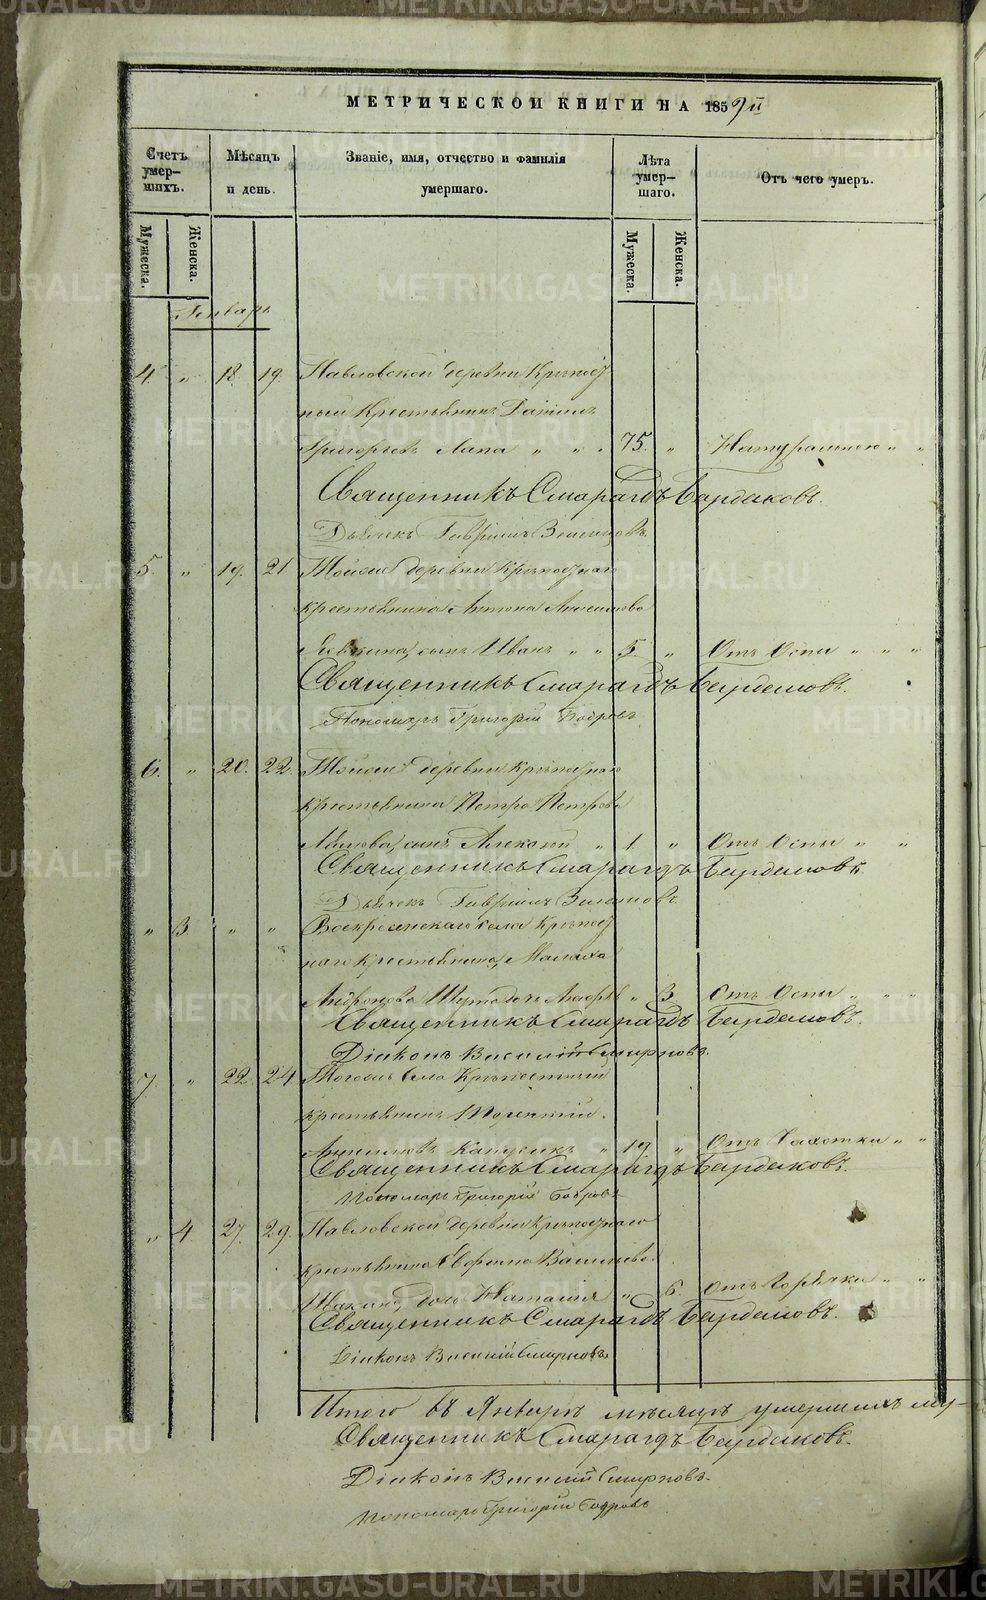 МЕТРИЧЕСКОЙ КНИГИ НА 1859й
Счетъ умер-шихъ.
Мѣсяцъ и день.
Званіе, имя, отчество и фамилія умершаго.
Лѣта умер-шаго.
Отъ чего умеръ.
Мужеска.
Женска.
Мужеска.
Женска.
Генварь
4. „ 18. 19. Павловской деревни Крѣпост
ный Крестьянинъ Даніилъ
Григорьевъ Лапа „ „ „ 75. „ Натуральною „ „
Священникъ Смарагдъ Бардаковъ.
Дьячекъ Гавріилъ
5. „ 19. 21. Тойже деревни Крѣпостнаго
крестьянина Антона
сынъ Иванъ „ „ 5. „ Отъ Оспы „ „ „
Священникъ Смарагдъ Бардаковъ.
Пономарь Григорій Бобровъ
6. „ 20. 22. Тойже деревни крѣпостнаго
крестьянина Петра Петрова
сынъ Алексѣй „ 1. „ Отъ Оспы „ „
Священникъ Смарагдъ Бардаковъ.
Дьячекъ Гавріилъ
„ 3. „ „ Воскресенскаго села Крѣпост
наго крестьянина
Андронова дочь „ 3. Отъ Оспы „ „ „
Священникъ Смарагдъ Бардаковъ.
Діаконъ Василій Смирновъ.
7. „ 22. 24. Тогожъ села Крѣпостный
крестьянинъ
„ 19. „ Отъ Чахотки „ „
Священникъ Смарагдъ Бардаковъ.
Пономарь Григорій Бобровъ
„ 4 27. 29. Павловской деревни Крѣпостнаго
крестьянина Васильева
дочь Наталія „ 6. Отъ Горячки „ „
Священникъ Смарагдъ Бардаковъ.
Діаконъ Василій Смирновъ
Итого въ Январѣ мѣсяцѣ умершихъ му-
Священникъ Смарагдъ Бардаковъ.
Діаконъ Василій Смирновъ.
Пономарь Григорій Бобровъ
METRIKI.GASO-URAL.RU